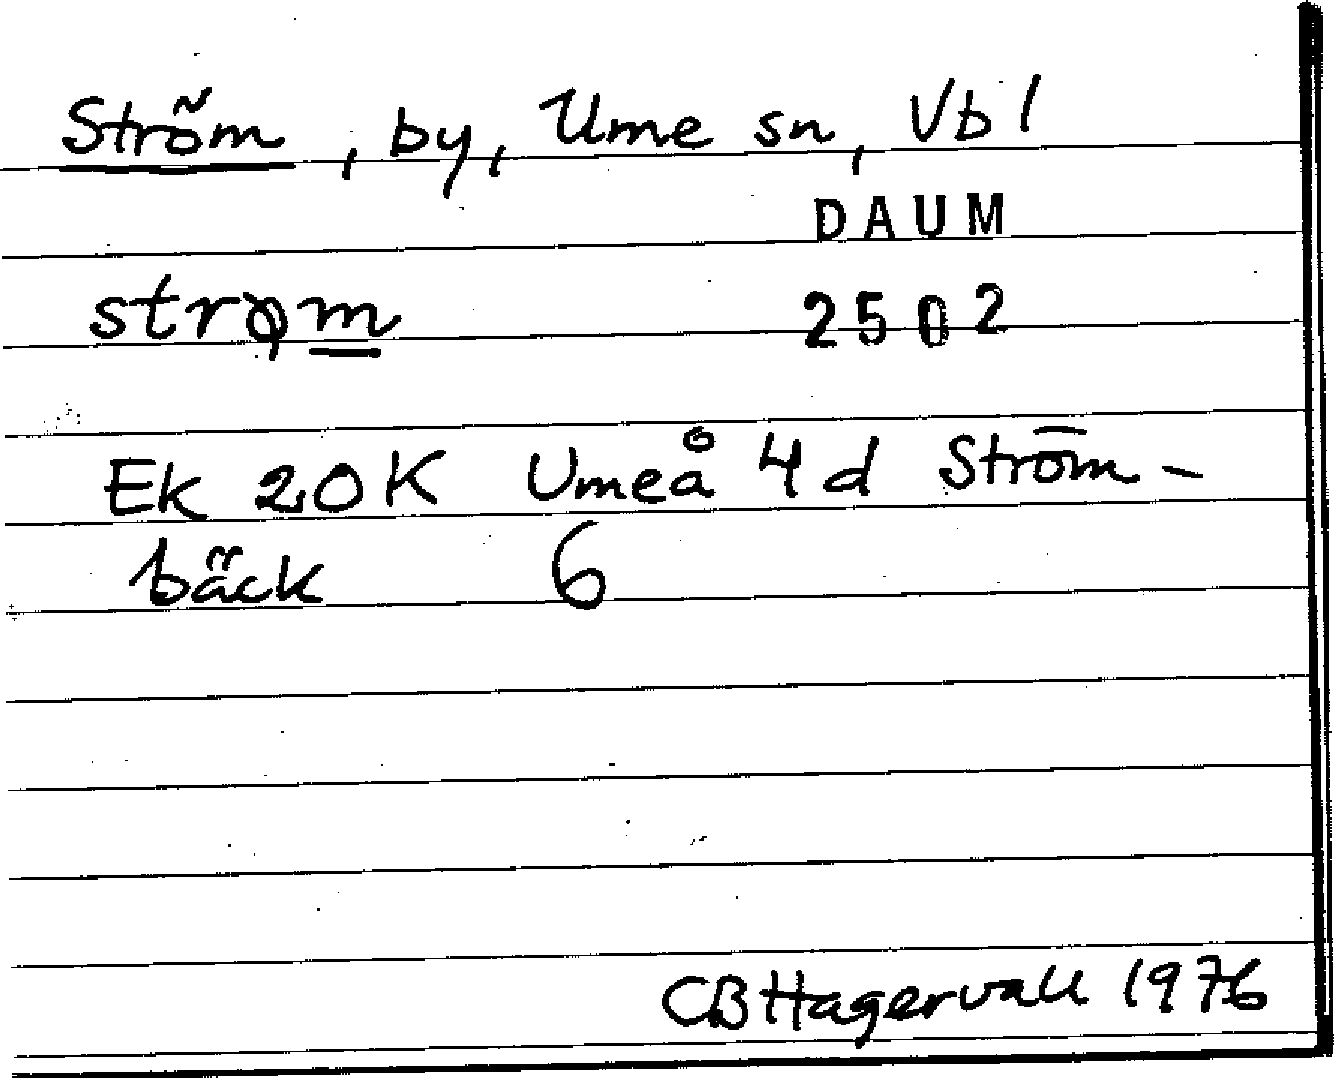 Ström, by, Ume sn, Vbl
DAUM
strǫm
2502
Ek 20K Umeå 4d Ström-
bäck 6
CBHagervall 1976